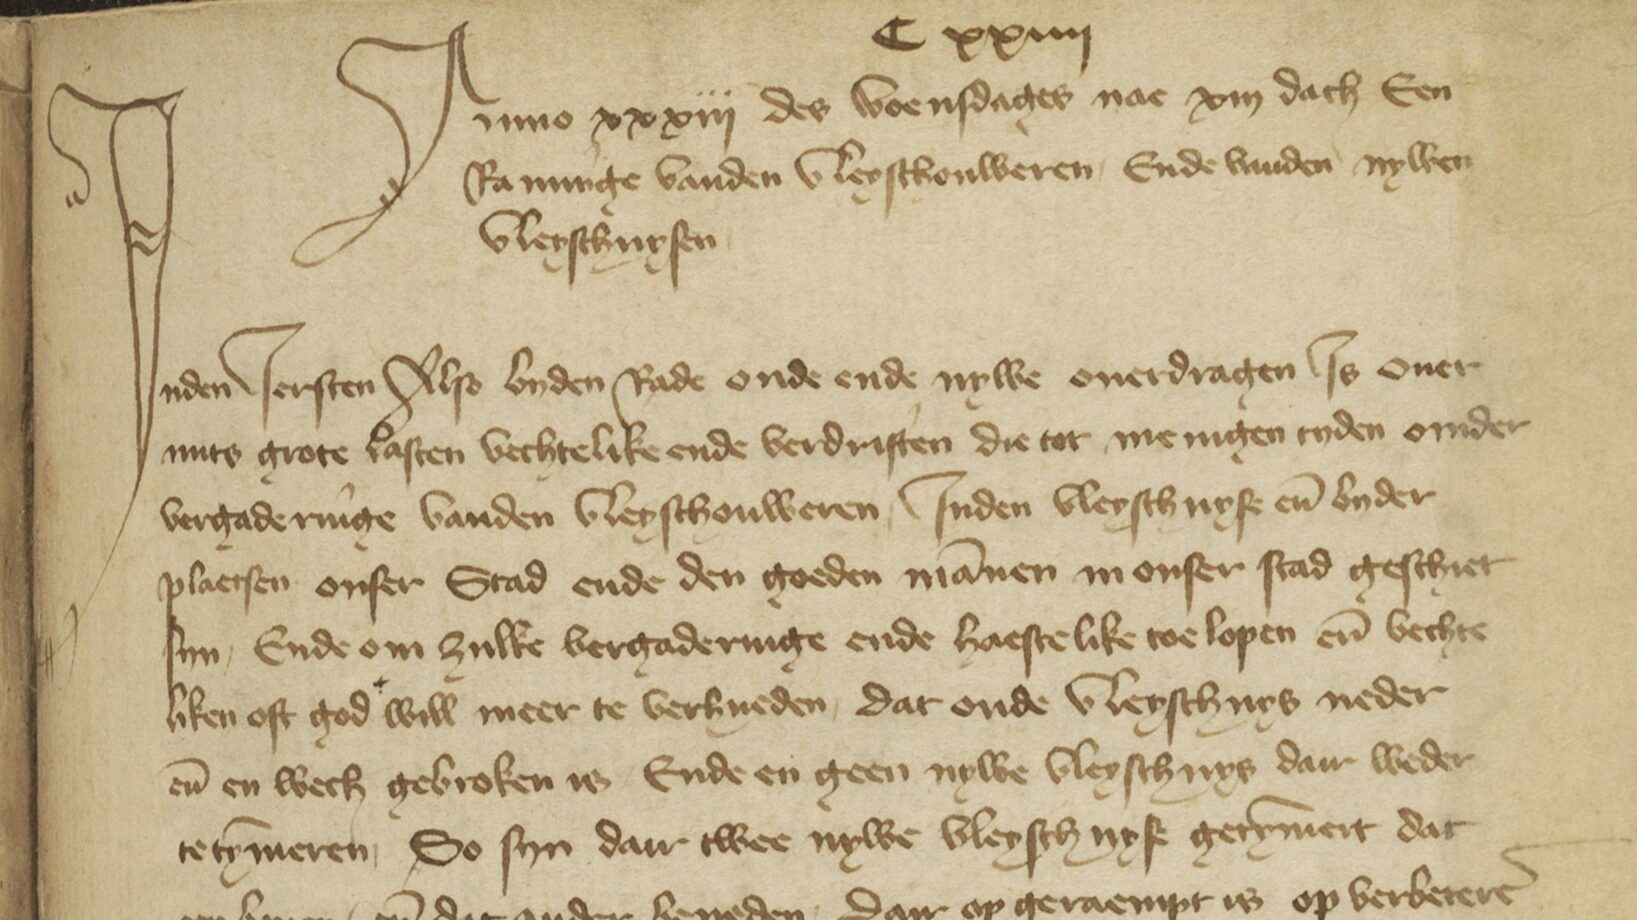 C xxiiii
Anno xxxiii des woensdages nae xiii dach Een
Raminge vanden vleyschouweren Ende vanden nywen
vleyschuysen
Inden Iersten Also byden Rade oude ende nywe ouerdragen Is ouer
mits grote lasten vechtelike ende verdrijten die tot menigen tyden onder
vergaderinge vanden vleyschouweren Inden vleyschuyse eñ byder
plaetsen onser Stad ende den goeden mānen in onser stad geschiet
syn Ende om zulke vergaderinge ende haestelike toe lopen eñ vechte
liken oft god will meer te verhueden dat oude vleyschuys neder
eñ en wech gebroken is Ende en geen nywe vleyschuys dair weder
te tȳmeren So syn dair twee nywe vleyschuyse getȳmert dat
eñ dat ander beneden Dair op geraempt is op verbeteren